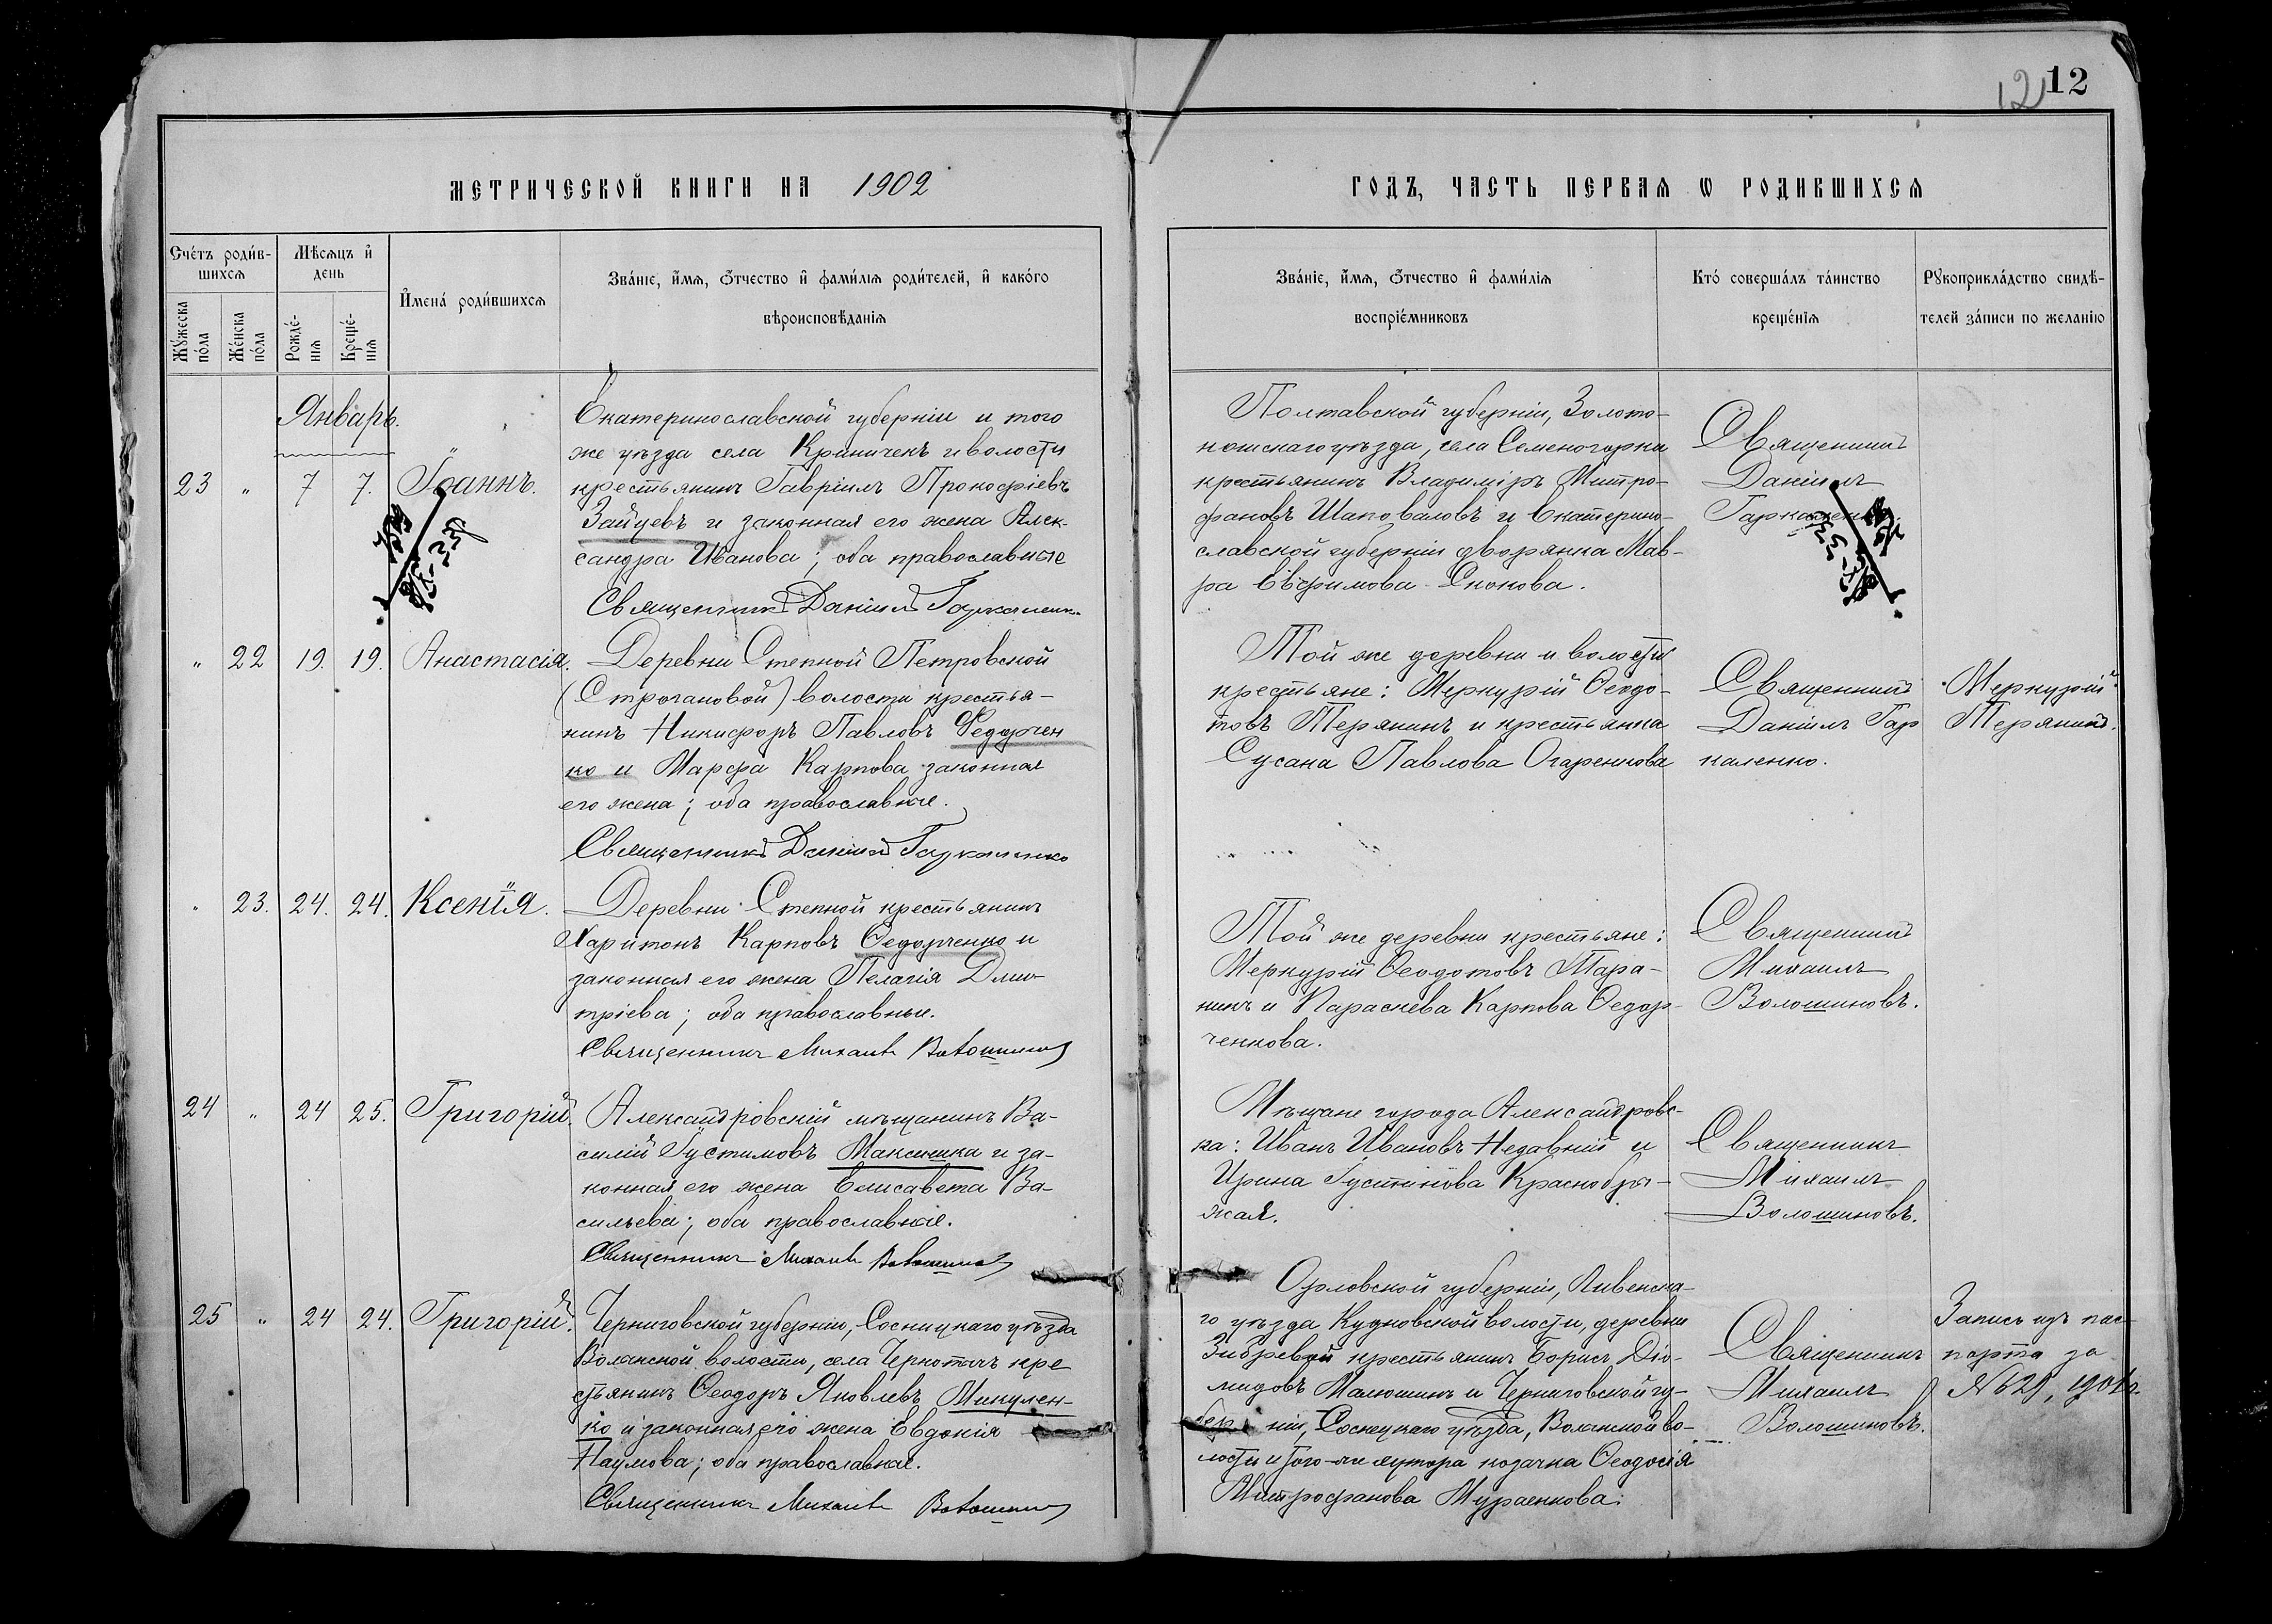 12 12
МЕТРИЧЕСКОЙ КНИГИ НА 1902
ГОДЪ, ЧАСТЬ ПЕРВАЯ Ѡ РОДИВШИХСЯ
Счетъ родив-
шихся
Мужеска
пола
Женска
пола
Мѣсяцъ и
день
Рожде-
нія
Креще-
нія
Имена родившихся
Званіе, имя, отчество и фамилія родителей, и какого
вѣроисповѣданія
Званіе, имя, отчество и фамилія
воспріемниковъ
Кто совершалъ таинство
крещенія
Рукоприкладство свидѣ-
телей записи по желанію
Январь.
23 " 7 7. Іоаннъ.
Екатеринославской губерніи и того
же уѣзда села Криничекъ и волости
крестьянинъ Гавріилъ Прокофіевъ
Зайцевъ и законная его жена Алек-
сандра Иванова; оба православные
Священникъ Даніилъ Гаркаленк.
Полтавской губерніи, Золото-
ношскаго уѣзда, села Семеногорка
крестьянинъ Владиміръ Митро-
фановъ Шаповаловъ и Екатерино-
славской губерніи дворянка Мав-
ра Евфимова Скокова.
Священникъ
Даніилъ
Гаркаленко.
" 22 19. 19. Анастасія.
Деревни Степной Петровской
(Строгановой) волости крестья-
нинъ Никифоръ Павловъ Федорчен
ко и Марфа Карпова законная
его жена; оба православные.
Священникъ Даніилъ Гаркаленко
Той же деревни и волости
крестьяне: Меркурій Ѳеодо-
товъ Терянинъ и крестьянка
Сусана Павлова Огаренкова
Священникъ
Даніилъ Гар
каленко.
Меркурій
Терянинъ.
" 23. 24. 24. Ксенія.
Деревни Степной крестьянинъ
Харитонъ Карповъ Ѳедорченко и
законная его жена Пелагія Дми-
тріева; оба православные.
Священникъ Михаилъ Волошиновъ
Той же деревни крестьяне:
Меркурій Ѳеодотовъ Тара-
нинъ и Параскева Карпова Ѳедор-
ченкова.
Священникъ
Михаилъ
Волошиновъ.
24 " 24 25. Григорій.
Александровскій мѣщанинъ Ва-
силій Густимовъ Максишка и за-
конная его жена Елисавета Ва-
сильева; оба православные.
Священникъ Михаилъ Волошиновъ
Мѣщане города Александровс-
ка: Иванъ Ивановъ Недавній и
Ирина Густинова Краснобры-
жая.
Священникъ
Михаилъ
Волошиновъ.
25 " 24 24. Григорій.
Черниговской губерніи, Сосницкаго уѣзда
Волынской волости, села Чернотичъ кре
стьянинъ Ѳеодоръ Яковлевъ Микулен-
ко и законная его жена Евдокія
Наумова; оба православные.
Священникъ Михаилъ Волошиновъ
Орловской губерніи, Ливенска-
го уѣзда Кудновской волости, деревни
Зибревой крестьянинъ Борисъ Діо-
мидовъ Малюшинъ и Черниговской гу-
бер ніи, Сосницкаго уѣзда, Волынской во-
лости и того-же хутора козачка Ѳеодосія
Митрофанова Мураенкова.
Священникъ
Михаилъ
Волошиновъ.
Запись изъ пас-
порта за
№ 629, 1901 г.